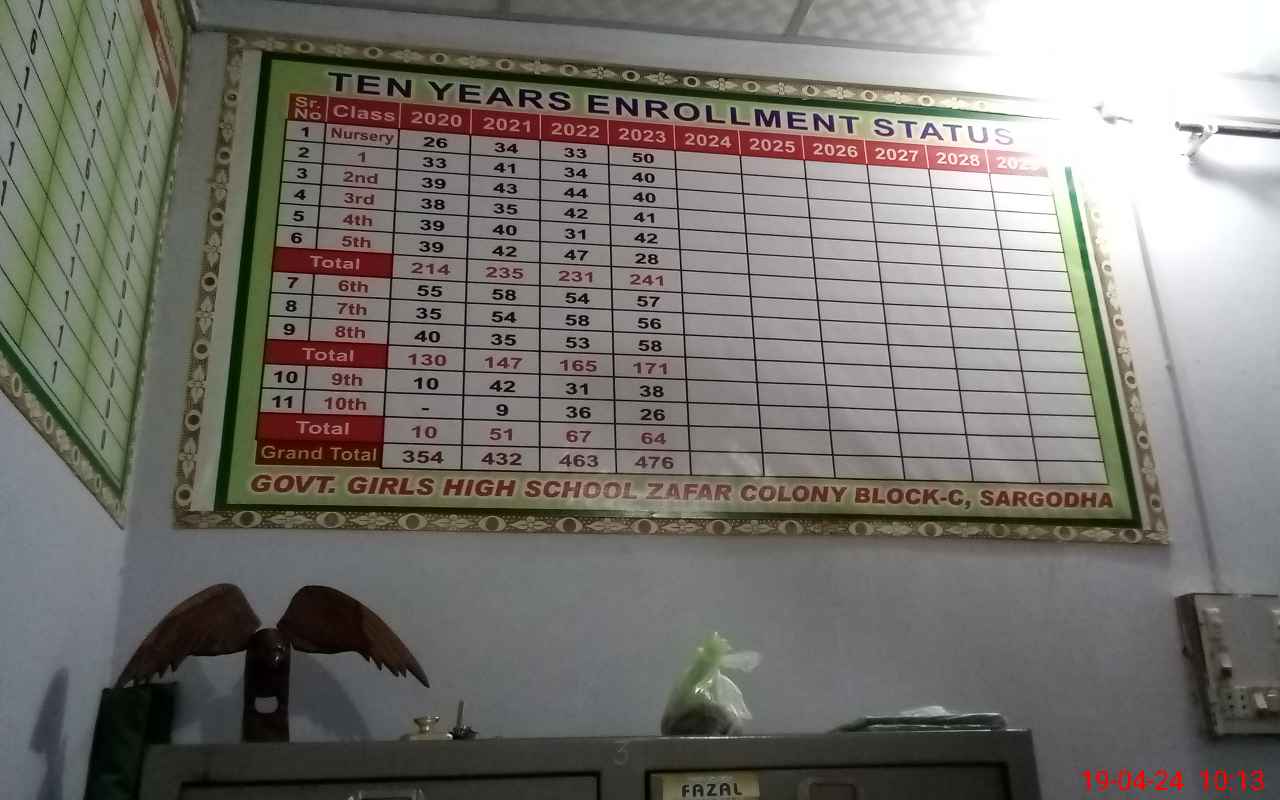 TEN YEARS ENROLLMENT STATUS
Sr. No Class 2020 2021 2022 2023 2024 2025 2026 2027 2028
1 Nursery 26 34 33 50
2 1 33 41 34 40
3 2nd 39 43 44 40
4 3rd 38 35 42 41
5 4th 39 40 31 42
6 5th 39 42 47 28
Total 214 235 231 241
7 6th 55 58 54 57
8 7th 35 54 58 56
9 8th 40 35 53 58
Total 130 147 165 171
10 9th 10 42 31 38
11 10th - 9 36 26
Total 10 51 67 64
Grand Total 354 432 463 476
GOVT. GIRLS HIGH SCHOOL ZAFAR COLONY BLOCK-C, SARGODHA
3
FAZAL
19-04-24 10:13